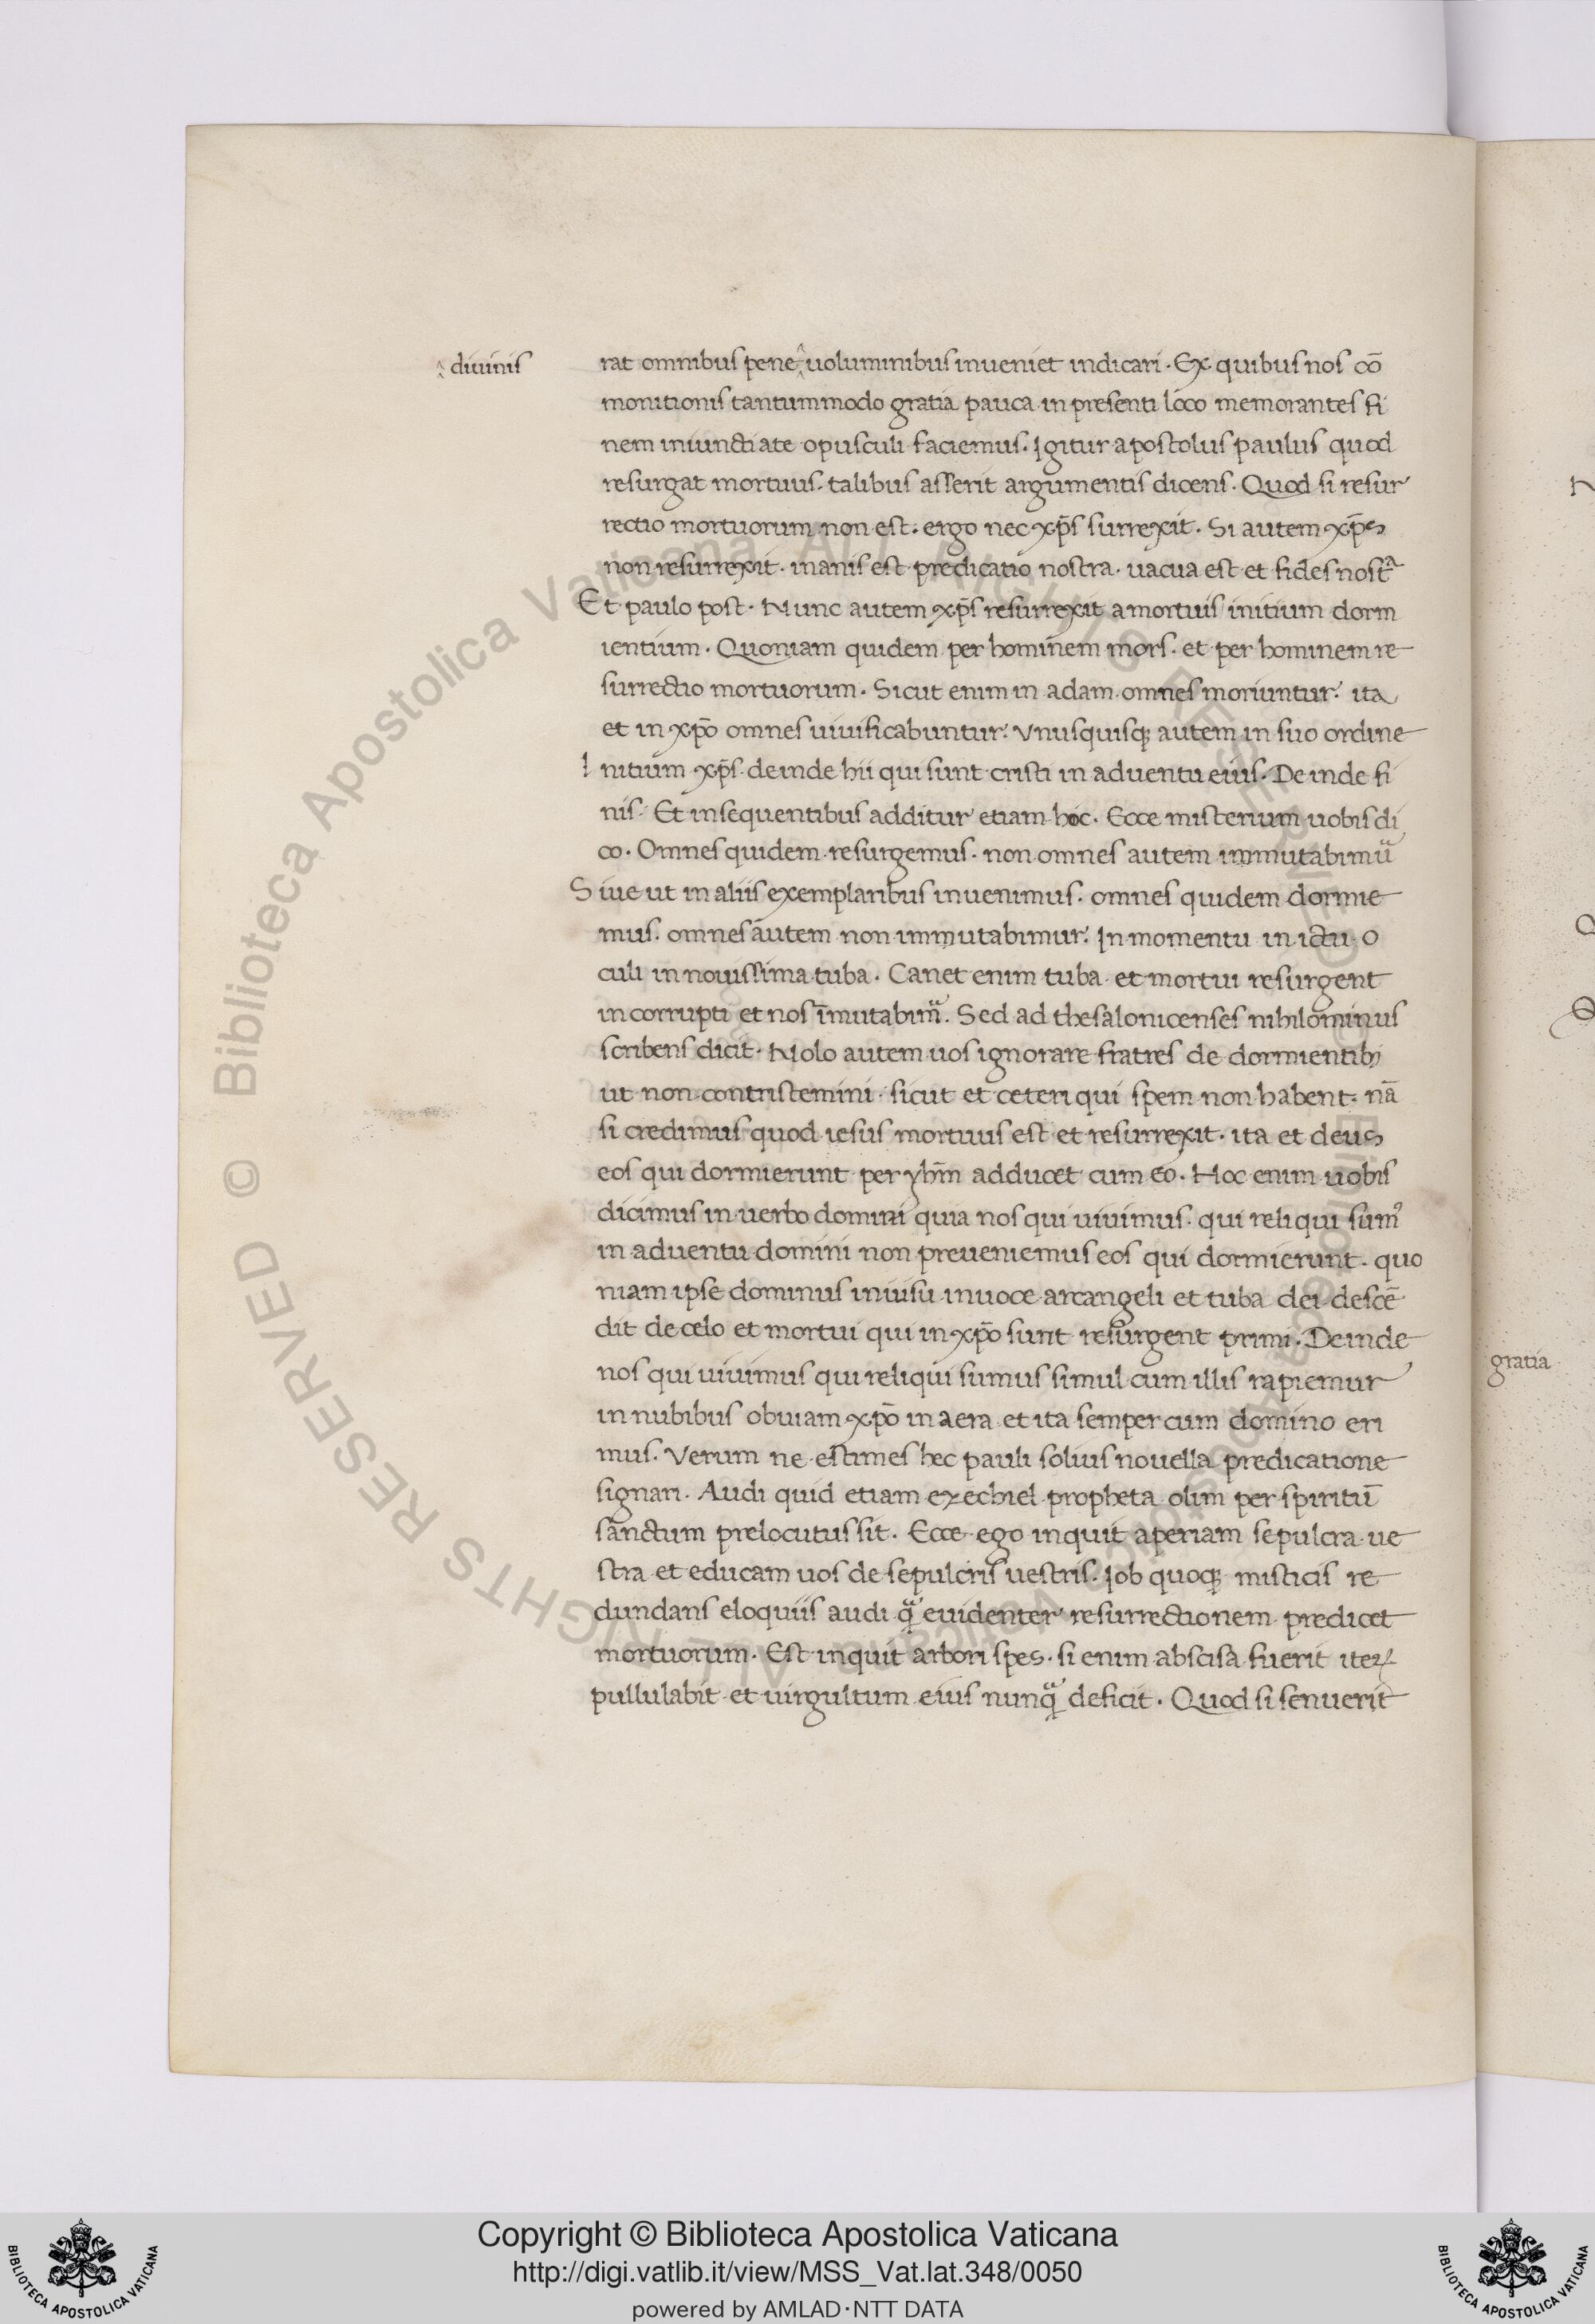 divinis
rat omnibus pene uoluminibus inueniet indicari. Ex quibus nos cō
monitionis tantummodo gratia pauca in presenti loco memorantes fi
nem iniunctiate opusculi faciemus. Igitur apostolus paulus quod
resurgat mortuus. talibus asserit argumentis dicens. Quod si resur
rectio mortuorum non est. ergo nec xp̄s surrexit. Si autem xp̄s
non resurrexit. inanis est predicatio nostra. uacua est et fides nostª
Et paulo post. Nunc autem xp̄s resurrexit a mortuis initium dorm
ientium. Quoniam quidem per hominem mors. et per hominem re
surrectio mortuorum. Sicut enim in adam omnes moriuntur. ita
et in xp̄o omnes uiuificabuntur. Vnusquisq; autem in suo ordine
Initium xp̄s. deinde hii qui sunt cristi in aduentu eius. Deinde fi
nis. Et in sequentibus additur etiam hoc. Ecce misterium uobis di
co. Omnes quidem resurgemus. non omnes autem immutabimuͣ
Siue ut in aliis exemplaribus inuenimus. omnes quidem dormie
mus. omnes autem non immutabimur. In momentu in ictu o
culi in nouissima tuba. Canet enim tuba et mortui resurgent
incorrupti et nos īmutabimͣ. Sed ad thesalonicenses nihilominus
scribens dicit. Nolo autem uos ignorare fratres de dormientib;
ut non contristemini sicut et ceteri qui spem non habent. nā
si credimus quod iesus mortuus est et resurrexit. ita et deus
eos qui dormierunt per yhm̄ adducet cum eo. Hoc enim uobis
dicimus in uerbo domini quia nos qui uiuimus. qui reliqui sum⁹
in aduentu domini non preueniemus eos qui dormierunt. quo
niam ipse dominus iniusu inuoce arcangeli et tuba dei descē
dit de celo et mortui qui in xp̄o sunt resurgent primi. Deinde
nos qui uiuimus qui reliqui sumus simul cum illis rapiemur
in nubibus obuiam xp̄o in aera et ita semper cum domino eri
mus. Verum ne estimes hec pauli solius nouella predicatione
signari. Audi quid etiam ezechiel propheta olim per spiritū
sanctum prelocutus sit. Ecce ego inquit aperiam sepulcra ue
stra et educam uos de sepulcris uestris. Iob quoq; misticis re
dundans eloquiis audi qͣ euidenter resurrectionem predicet
mortuorum. Est inquit arbori spes. si enim abscisa fuerit iteꝝ
pullulabit et uirgultum eius nunqͣ deficit. Quod si senuerit
gratia
© Biblioteca Apostolica Vaticana ALL RIGHTS RESERVED
Copyright © Biblioteca Apostolica Vaticana
http://digi.vatlib.it/view/MSS_Vat.lat.348/0050
powered by AMLAD·NTT DATA
BIBLIOTECA APOSTOLICA VATICANA
BIBLIOTECA APOSTOLICA VATICANA